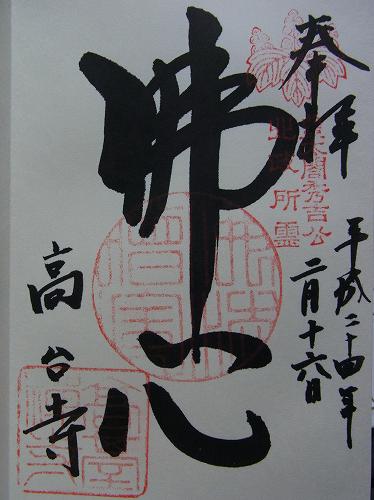 奉拝
平成二十四年
二月十六日
豊太閤秀吉公
北政所霊
佛心
高台寺